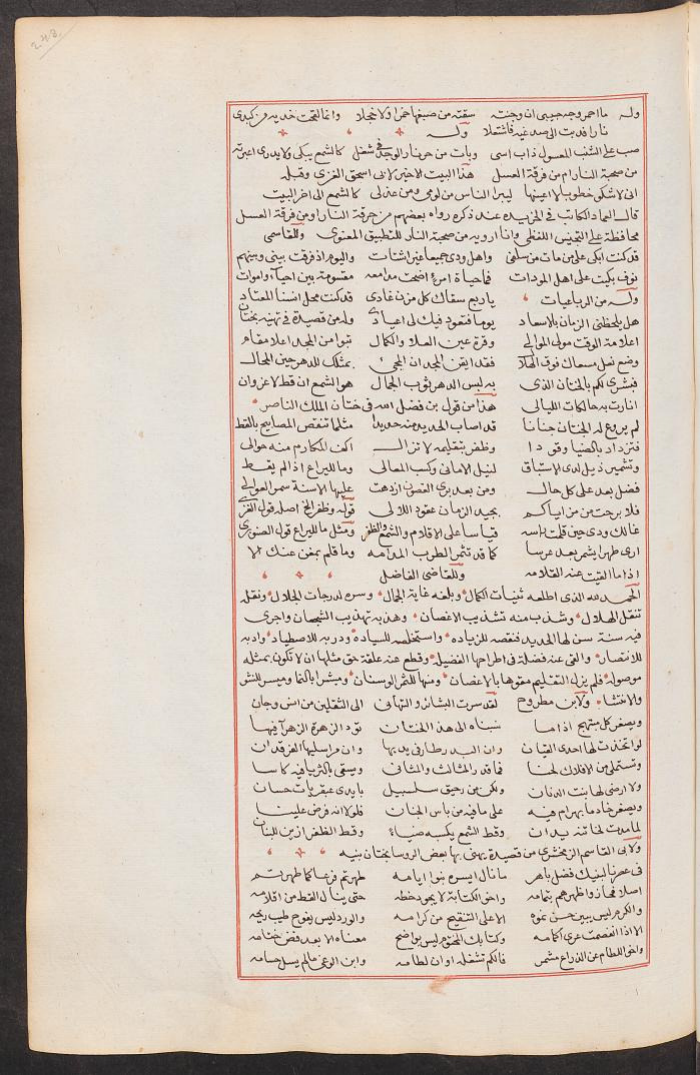 248
وله ما احمر وجه حبيبى ان وجنته سقته من صبغها خمرا ولا خجلا وانما لفحت خديه من كبدى
نارا فدبت الى صدغيه فاشتعلا وله
صب على الشنب المعسول ذاب اسى وبات من حر نار الوجد فى شغل كالشمع يبكى ولا يدرى اعبرته
من صحبة النار ام من فرقة العسل هذا البيت الاخير لابى اسحق الغزى وقبله
انى لاشكو خطوبا لا اعينها ليبرا الناس من لومى ومن عذلى كالشمع الى اخر البيت
قال العماد الكاتب فى الخريده عند ذكره رواه بعضهم من حرقة النار او من فرقة العسل
محافظة على التجنيس اللفظى وانا ارويه من صحبة النار للتطبيق المعنوى وللقاسمى
قد كنت ابكى على من مات من سلفى واهل ودى جميعا غير اشتات واليوم اذ فرقت بينى وبينهم
نوى بكيت على اهل المودات فما حياة امرئ اضحت مدامعه مقسومة بين احياء واموات
وله من الرباعيات يا ربع سقاك كل مزن غادى قد كنت محل انسنا المعتاد
هل يلحظنى الزمان بالاسعاد يوما فتعود فيك لى اعيادى وله من قصيدة فى تهنية بختان
اعلامة الوقت مولى الموالى وقرة عين العلا والكمال تبوا من المجد اعلا مقام
وضع نعل مسعاك فوق الهلال فقد ايقن المجد ان المجئ بمثلك للدهر عين المحال
فبشرى لكم بالختان الذى به لبس الدهر ثوب الجمال هو الشمع ان قط لا غرو ان
انارت به حالكات الليالى هذا من قول بن فضل الله فى ختان الملك الناصر
لم يروع له الختان جنانا قد اصاب الحديد منه حديدا مثلما تنقص المصابيح بالقط
فتزداد بالضيا وقودا وظفر بتقليمه لا تزال اكف المكارم منه حوالى
وتشمير ذيل لدى الاستباق لنيل الامانى وكسب المعالى وما لليراع اذا لم يقط
فضل بعد على كل حال ومن بعد برى الغصون ازدهت عليها الاسنة سمر العوالى
فلا برحت من من اياكم بجيد الزمان عقود اللالى قوله وظفر الخ اصله قول الغزى
غالك ودى حين قلت براسه قياسا على الاقلام والشمع والظفر ومثل ما لليراع قول الصنوبرى
ارى طهرا يثمر بعد عرسا كما قد تثمر الطرب المدامه وما قلم بمغن عنك الا
اذا ما القيت عنه القلامه وللقاضى الفاضل
الحمد لله الذى اطلعه ثنيات الكمال وبلغه غاية الجمال وسره لدرجات الجلال ونقله
تنقل الهلال وشذب منه تشذيب الاغصان وهذبه تهذيب الشجعان واجرى
فيه سنة سن لها الحديد فنقصه للزياده واستخلصه للسياده ودربه للاصطياد وادبه
للانتصار والقى عنه فضلة فى اطراحها الفضيله وقطع عنه علقة حق مثلها ان لا تكون بمثله
موصوله فلم يزل التقليم منوها بالاغصان ومنبها للثمر الوسنان ومبشرا بالنما وميسر للنش
والافتشا ولابن مطروح لقد سرت البشائر والتهانى الى الثقلين من انس وجان
ويصغر كل مبتهج اذا ما نسبناه الى هذا الختان تود الزهرة الزهرا فيها
لو اتخذت لها احدى القيان وان البدر طار فى يديها وان مراسليها الفرقدان
وتستملى من الافلاك لحنا فما قدر المثالث والمثانى ويسقى بالثريا فيه كاسا
ولا ارضى لها بنت الدنان ولكن من رحيق سلسبيل بايدى عبقريات حسان
ويصغر خادما بهرام فيه على ما فيه من باس الجنان فلولا انه فرض علينا
لما مدت لخاتنه يدان وقط الشمع يكسبه ضياء وقط الظفر ازين للبنان
ولابى القاسم الزمخشرى من قصيدة يهنى بها بعض الروسا بختان بنيه
فى عصرنا لبنيك فضل باهر ما نال ايسره بنوا ايامه طهرتهم فرعا كما طهرتهم
اصلا فحاز واظهرهم بتمامه واخو الكتابة لا يجود خطه حتى ينال القط من اقلامه
والكرم ليس يبين حسن نموه الا على التنقيح من كرامه والورد ليس يفوح طيب ريحه
الا اذا انفصمت عرى اكمامه وكتابك المختوم ليس بواضح معناه الا بعد فض ختامه
واخو اللطام عن الذراع مشمر فالكم تشغله اوان لطامه وابن الوغى ما لم يسل حسامه